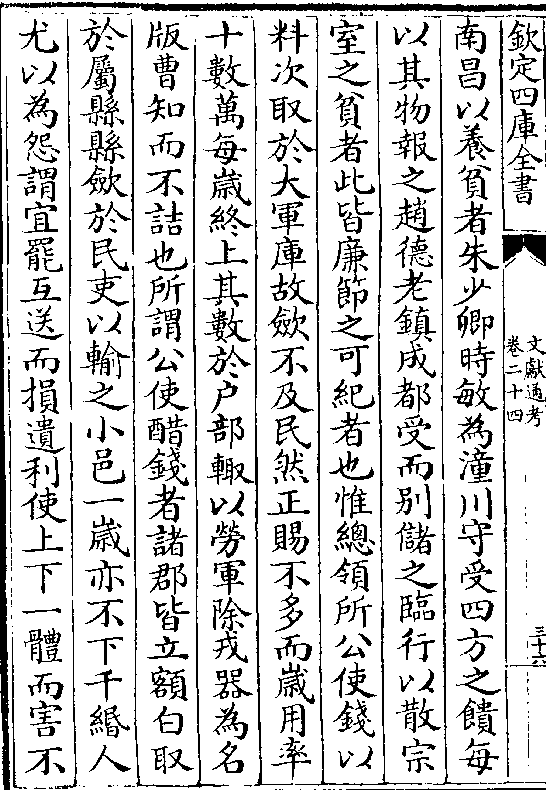 欽定四庫全書
文獻通考
卷二十四
三十六
南昌以養貧者朱少卿時敏為潼川守受四方之饋每
以其物報之趙德老鎮成都受而别儲之臨行以散宗
室之貧者此皆廉節之可紀者也惟總領所公使錢以
料次取於大軍庫故斂不及民然正賜不多而嵗用率
十數萬每嵗終上其數於户部輙以勞軍除戎器為名
版曹知而不詰也所謂公使醋錢者諸郡皆立額白取
於屬縣縣斂於民吏以輸之小邑一嵗亦不下千緡人
尤以為怨謂宜罷互送而損遺利使上下一體而害不